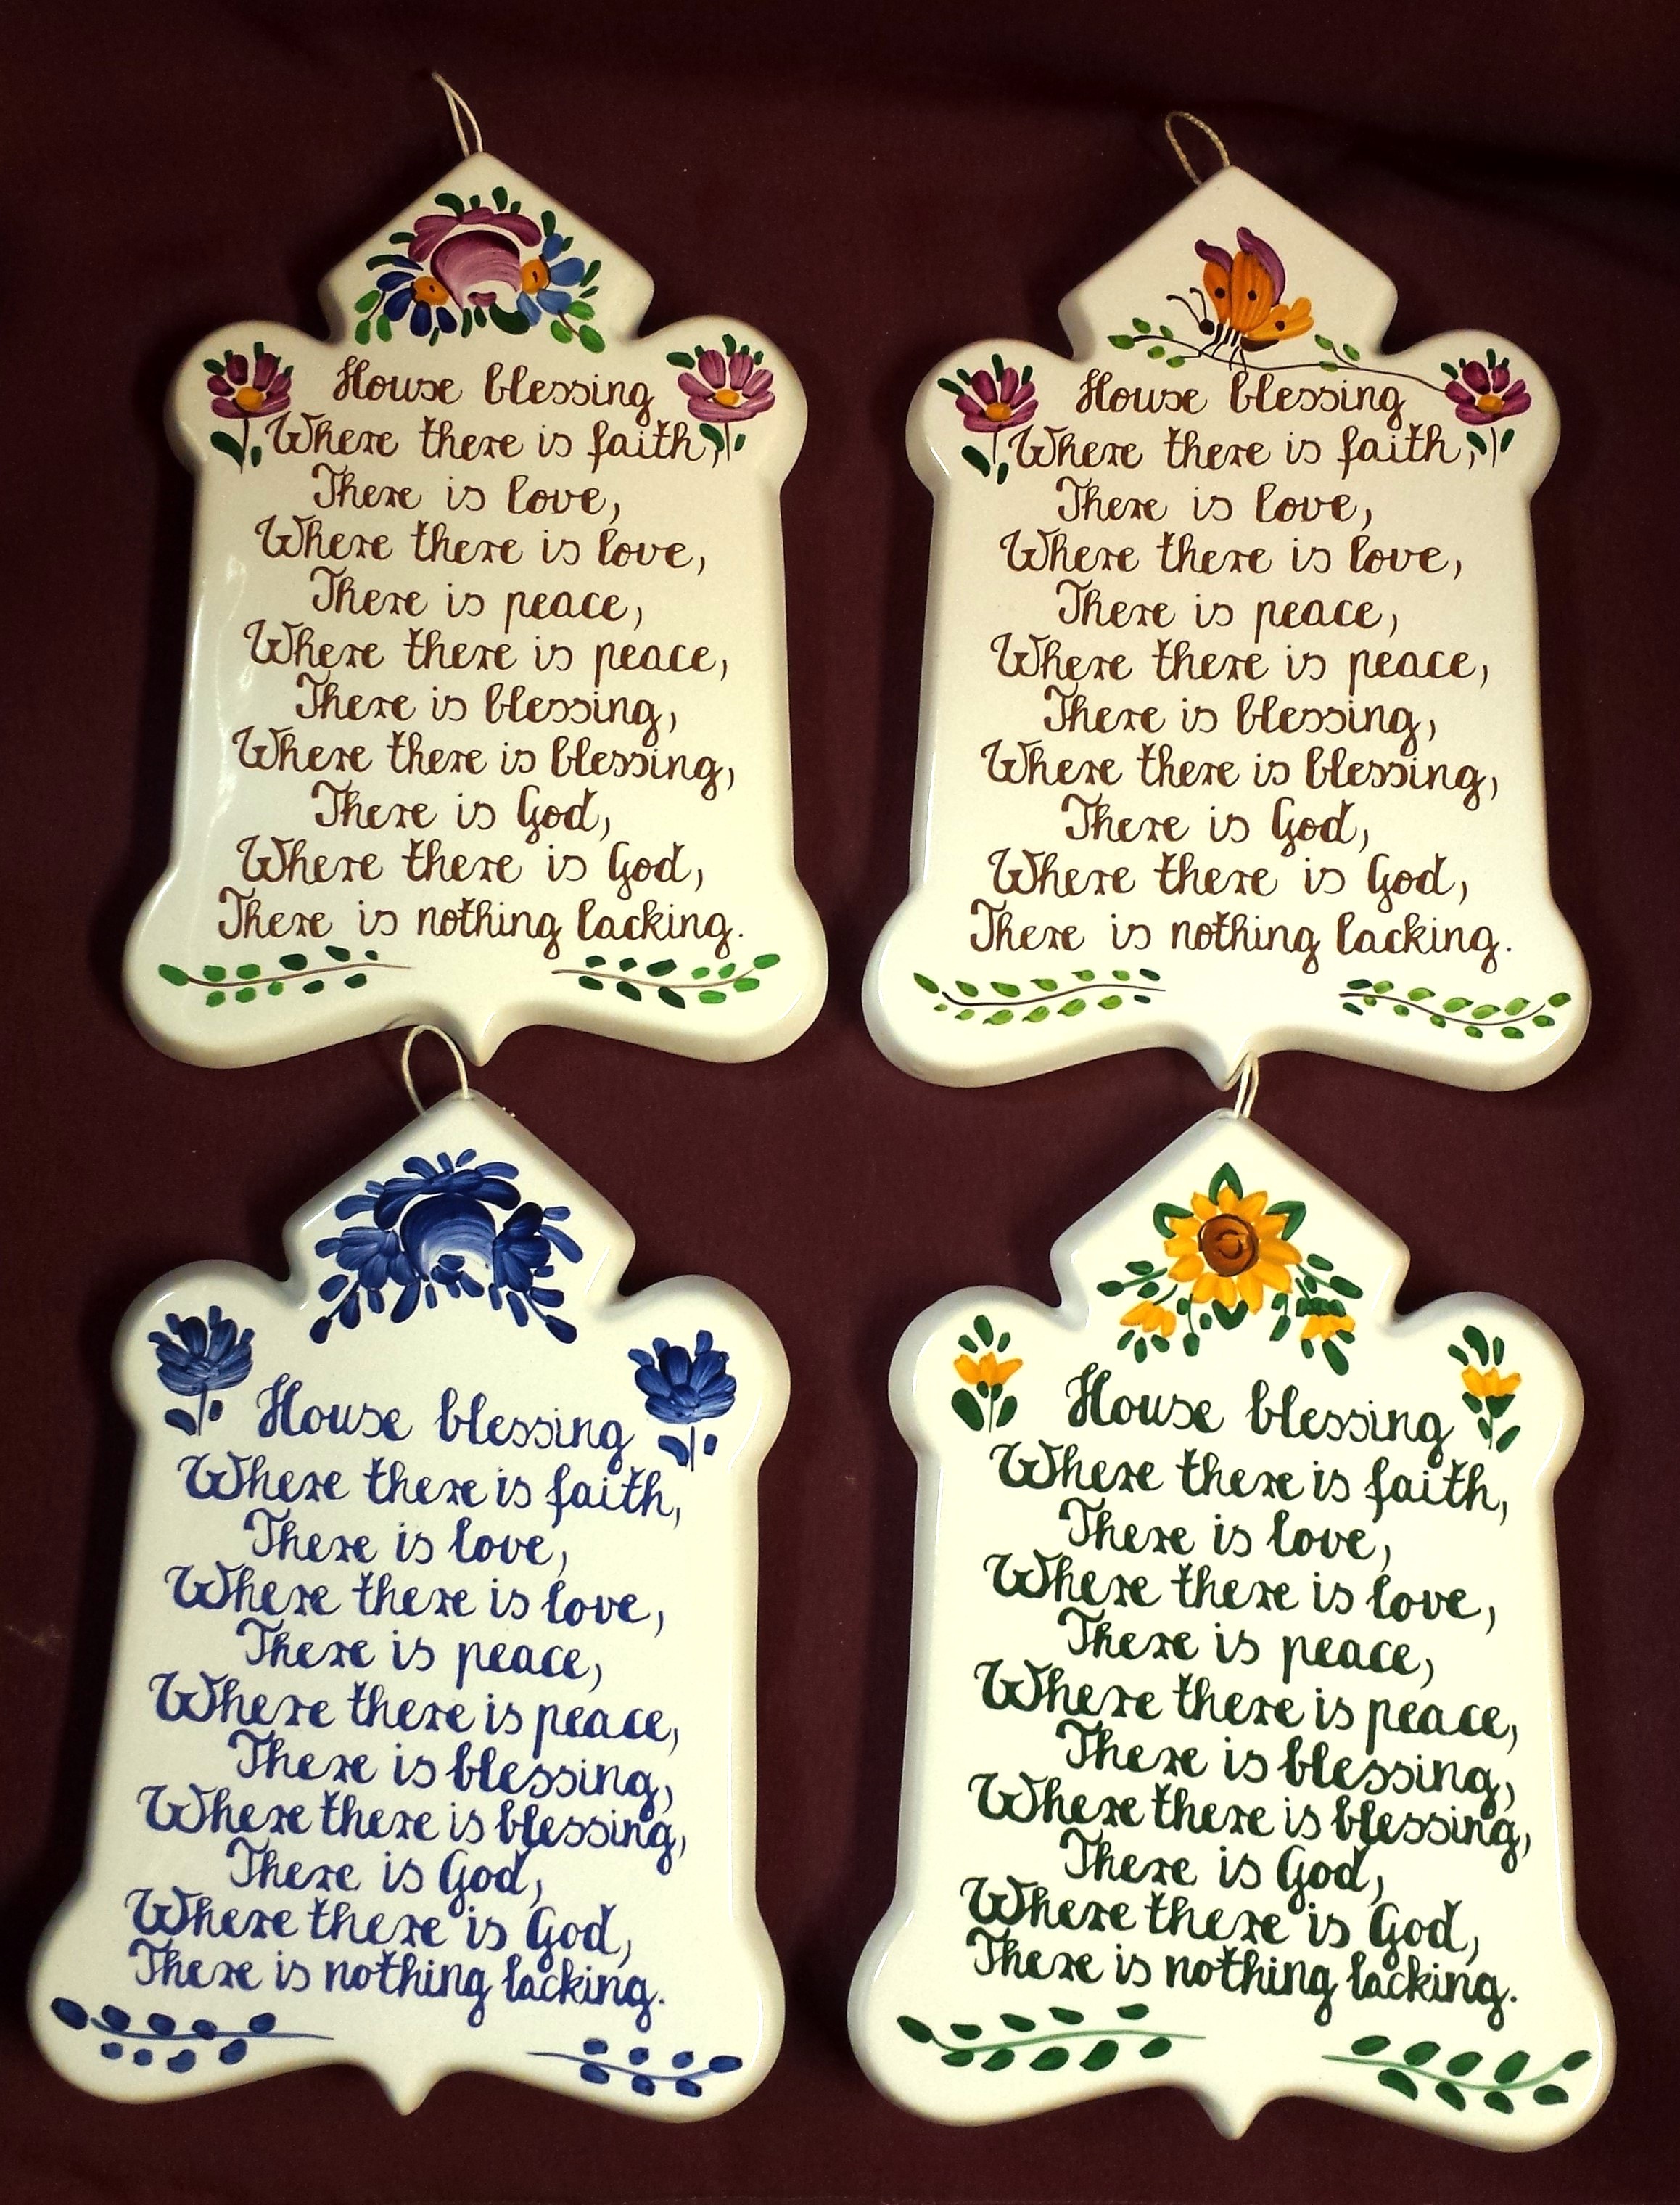 House blessing
Where there is faith,
There is love,
Where there is love,
There is peace,
Where there is peace,
There is blessing,
Where there is blessing,
There is God,
Where there is God,
There is nothing lacking.
House blessing
Where there is faith,
There is love,
Where there is love,
There is peace,
Where there is peace,
There is blessing,
Where there is blessing,
There is God,
Where there is God,
There is nothing lacking.
House blessing
Where there is faith,
There is love,
Where there is love,
There is peace,
Where there is peace,
There is blessing,
Where there is blessing,
There is God,
Where there is God,
There is nothing lacking.
House blessing
Where there is faith,
There is love,
Where there is love,
There is peace,
Where there is peace,
There is blessing,
Where there is blessing,
There is God,
Where there is God,
There is nothing lacking.